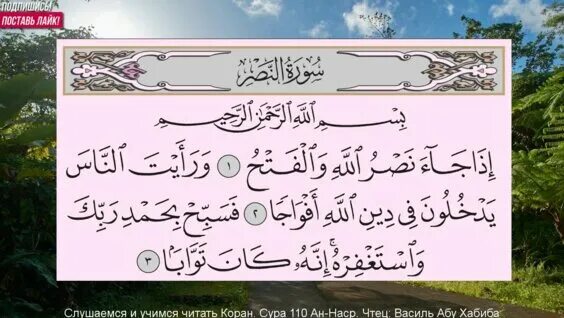 ПОДПИШИСЬ!
ПОСТАВЬ ЛАЙК!
سُورَةُ النَّصْرِ
بِسْمِ اللَّهِ الرَّحْمَٰنِ الرَّحِيمِ
إِذَا جَآءَ نَصْرُ اللَّهِ وَالْفَتْحُ ١ وَرَأَيْتَ النَّاسَ
يَدْخُلُونَ فِي دِينِ اللَّهِ أَفْوَاجًا ٢ فَسَبِّحْ بِحَمْدِ رَبِّكَ
وَاسْتَغْفِرْهُ ۚ إِنَّهُ كَانَ تَوَّابًا ٣
Слушаемся и учимся читать Коран. Сура 110 Ан-Наср. Чтец: Василь Абу Хабиба